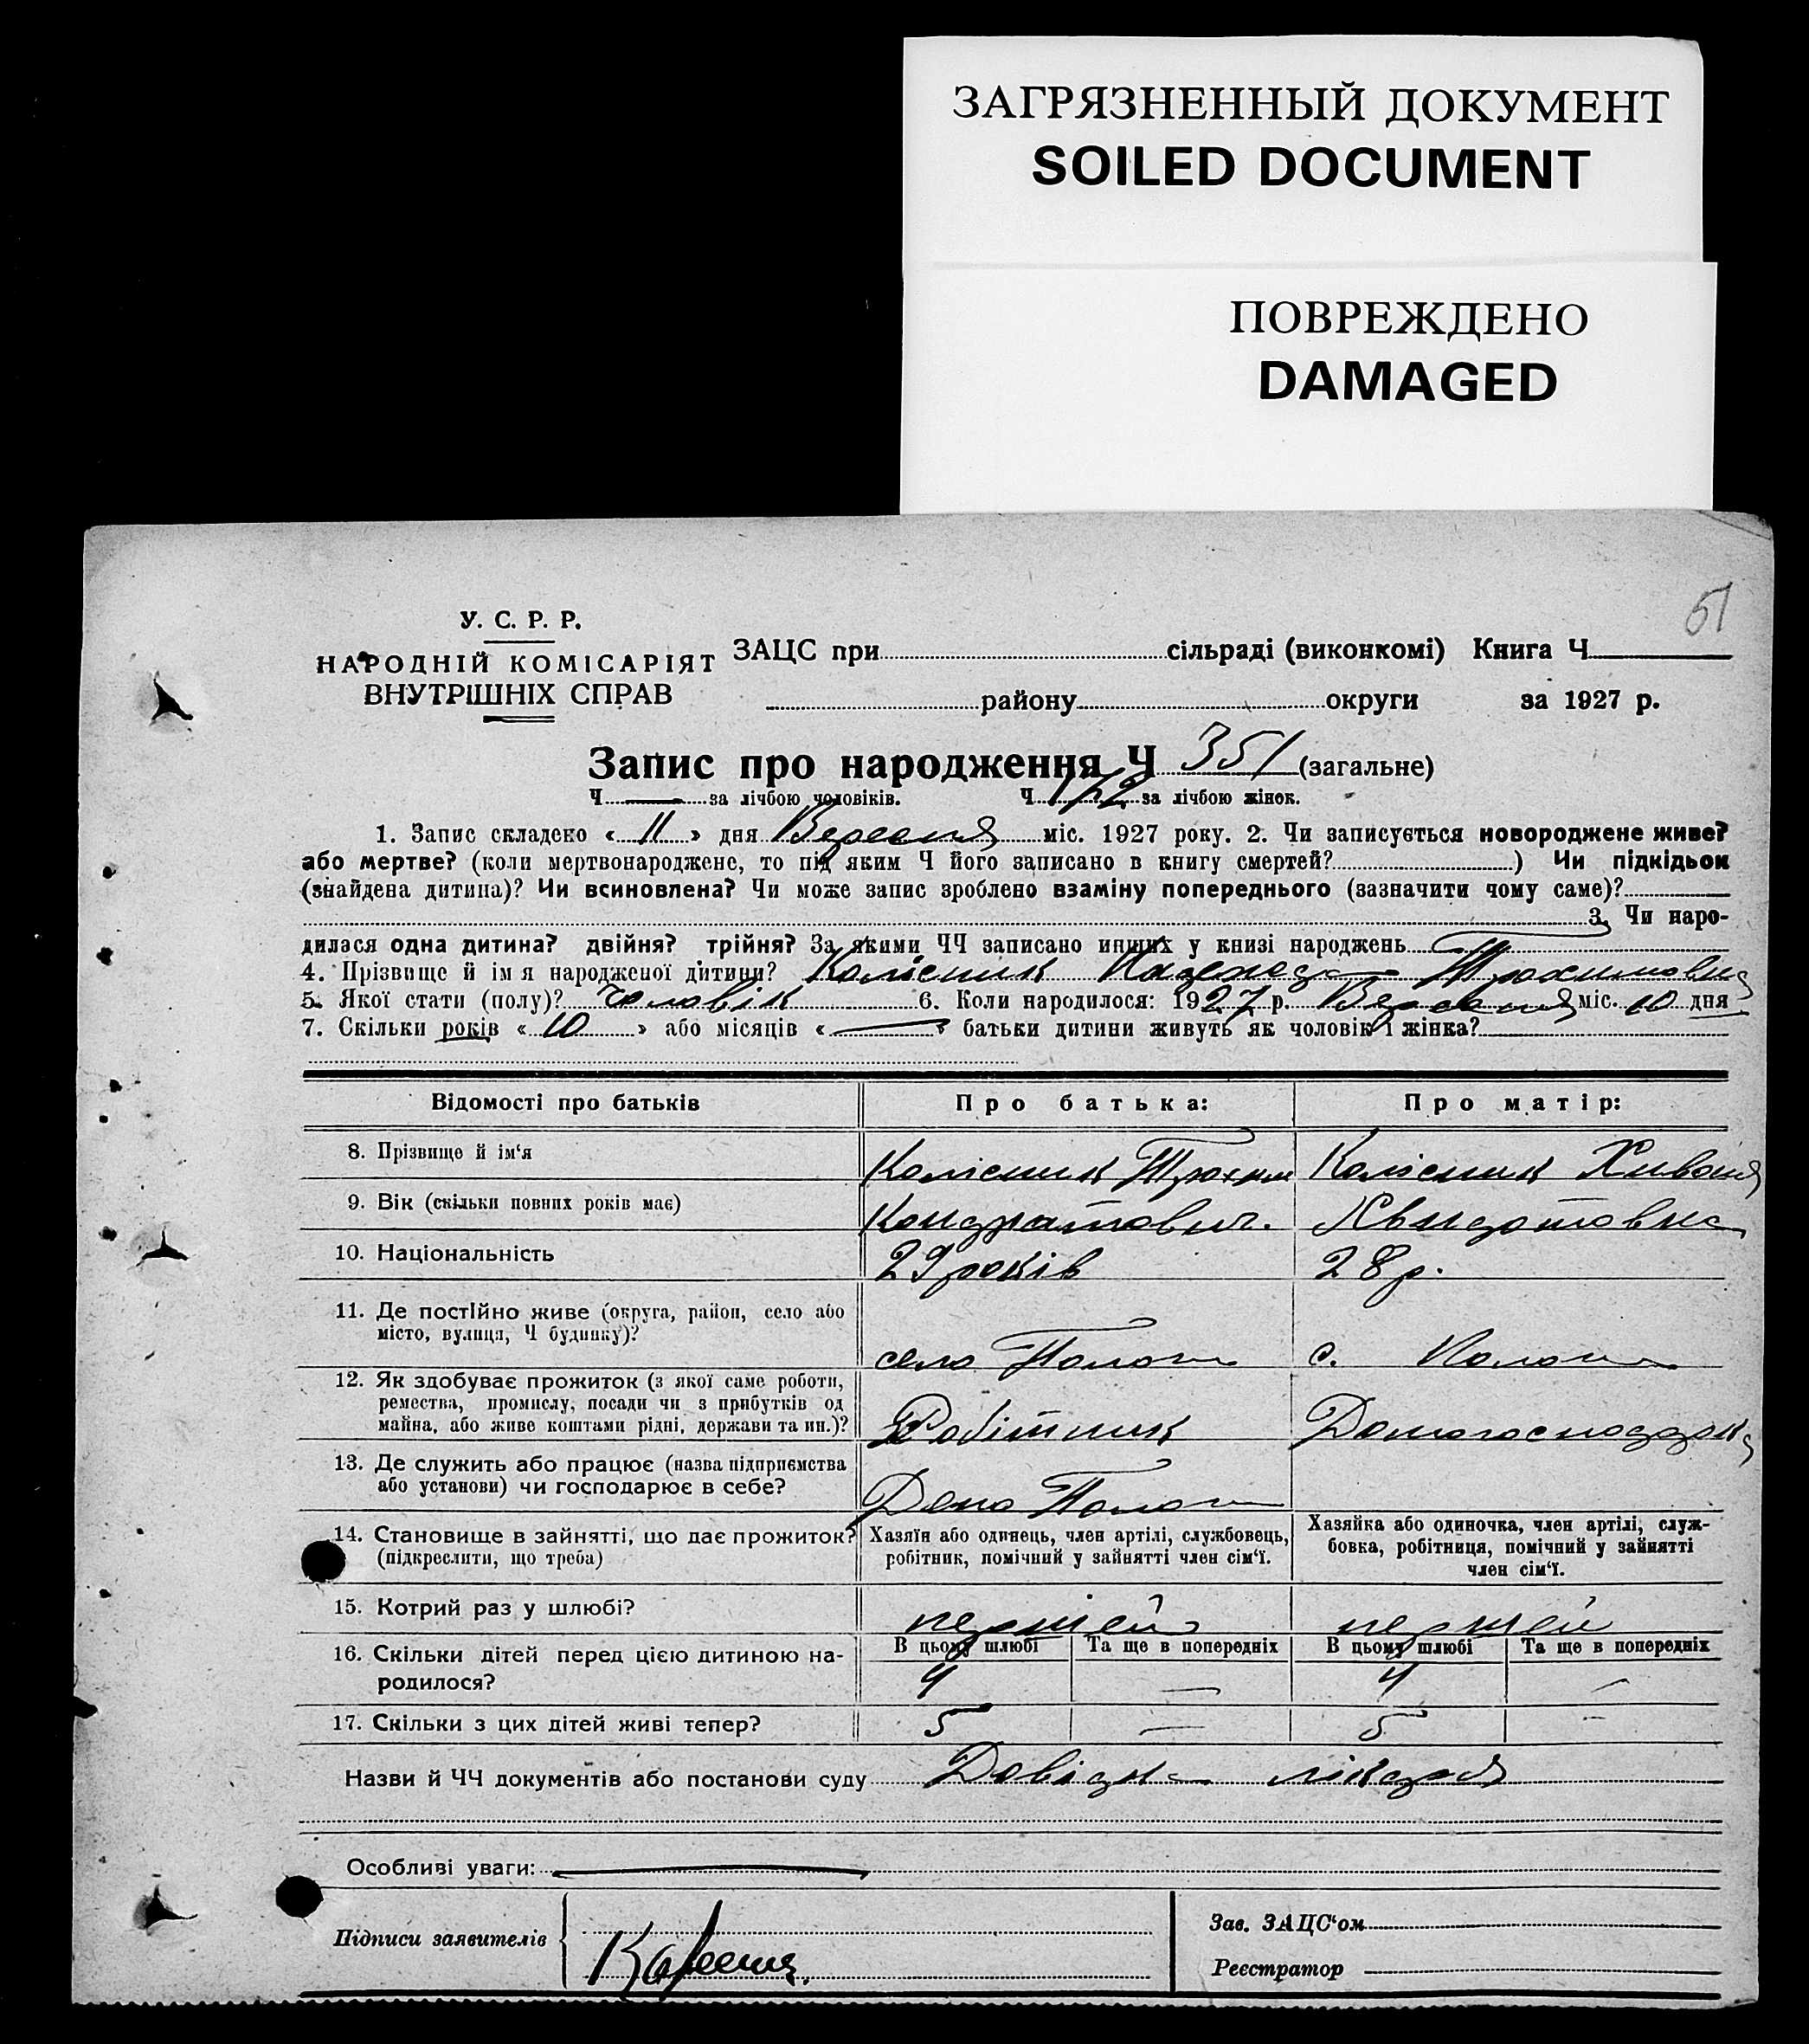 ЗАГРЯЗНЕННЫЙ ДОКУМЕНТ
SOILED DOCUMENT
ПОВРЕЖДЕНО
DAMAGED
51
У. С. Р. Р.
НАРОДНІЙ КОМІСАРІЯТ
ВНУТРІШНІХ СПРАВ
ЗАЦС при сільраді (виконкомі) Книга Ч.
району округи за 1927 р.
Запис про народження Ч 351 (загальне)
Ч за лічбою чоловіків. Ч 172 за лічбою жінок.
1. Запис складено « 11 » дня Вересня міс. 1927 року. 2. Чи записується новороджене живе?
або мертве? (коли мертвонароджене, то під яким Ч його записано в книгу смертей? ) Чи підкідьок
(знайдена дитина)? Чи всиновлена? Чи може запис зроблено взаміну попереднього (зазначити чому саме)?
3. Чи наро-
дилася одна дитина? двійня? трійня? За якими ЧЧ записано инших у книзі народжень
4. Прізвище й ім я народженої дитини? Колісник Надежда Трохимовна
5. Якої стати (полу)? Чоловік 6. Коли народилося: 1927 р. Вересня міс. 10 дня
7. Скільки років « 10 » або місяців « — » батьки дитини живуть як чоловік і жінка?
Відомості про батьків Про батька: Про матір:
8. Прізвище й ім'я Колісник Трохим Колісник
9. Вік (скільки повних років має) Кондратович.
10. Національність 29 років 28 р.
11. Де постІйно живе (округа, район, село або
місто, вулиця, Ч будинку)? село Пологи с. Пологи
12. Як здобуває прожиток (з якої саме роботи,
ремества, промислу, посади чи з прибутків од
майна, або живе коштами рідні, держави та ин.)? Робітник Домогосподарка
13. Де служить або працює (назва підприємства
або установи) чи господарює в себе? Депо Пологи
14. Становище в зайнятті, що дає прожиток?
(підкреслити, що треба)
Хазяїн або одинець, член артілі, службовець,
робітник, помічний у зайнятті член сім'ї.
Хазяйка або одиночка, член артілі, служ-
бовка, робітниця, помічний у зайнятті
член сім'ї.
15. Котрий раз у шлюбі? першей першей
В цьому шлюбі Та ще в попередніх В цьому шлюбі Та ще в попередніх
16. Скільки дітей перед цією дитиною на-
родилося? 4 — 4 —
17. Скільки з цих дітей живі тепер? 5 — 5 —
Назви й ЧЧ документів або постанови суду Довідка лікаря
Особливі уваги:
Підписи заявителів
Зав. ЗАЦС'ом
Реєстратор